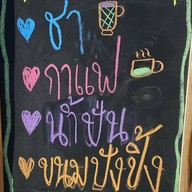 ชา
กาแฟ
น้ำปั่น
ขนมปังปิ้ง